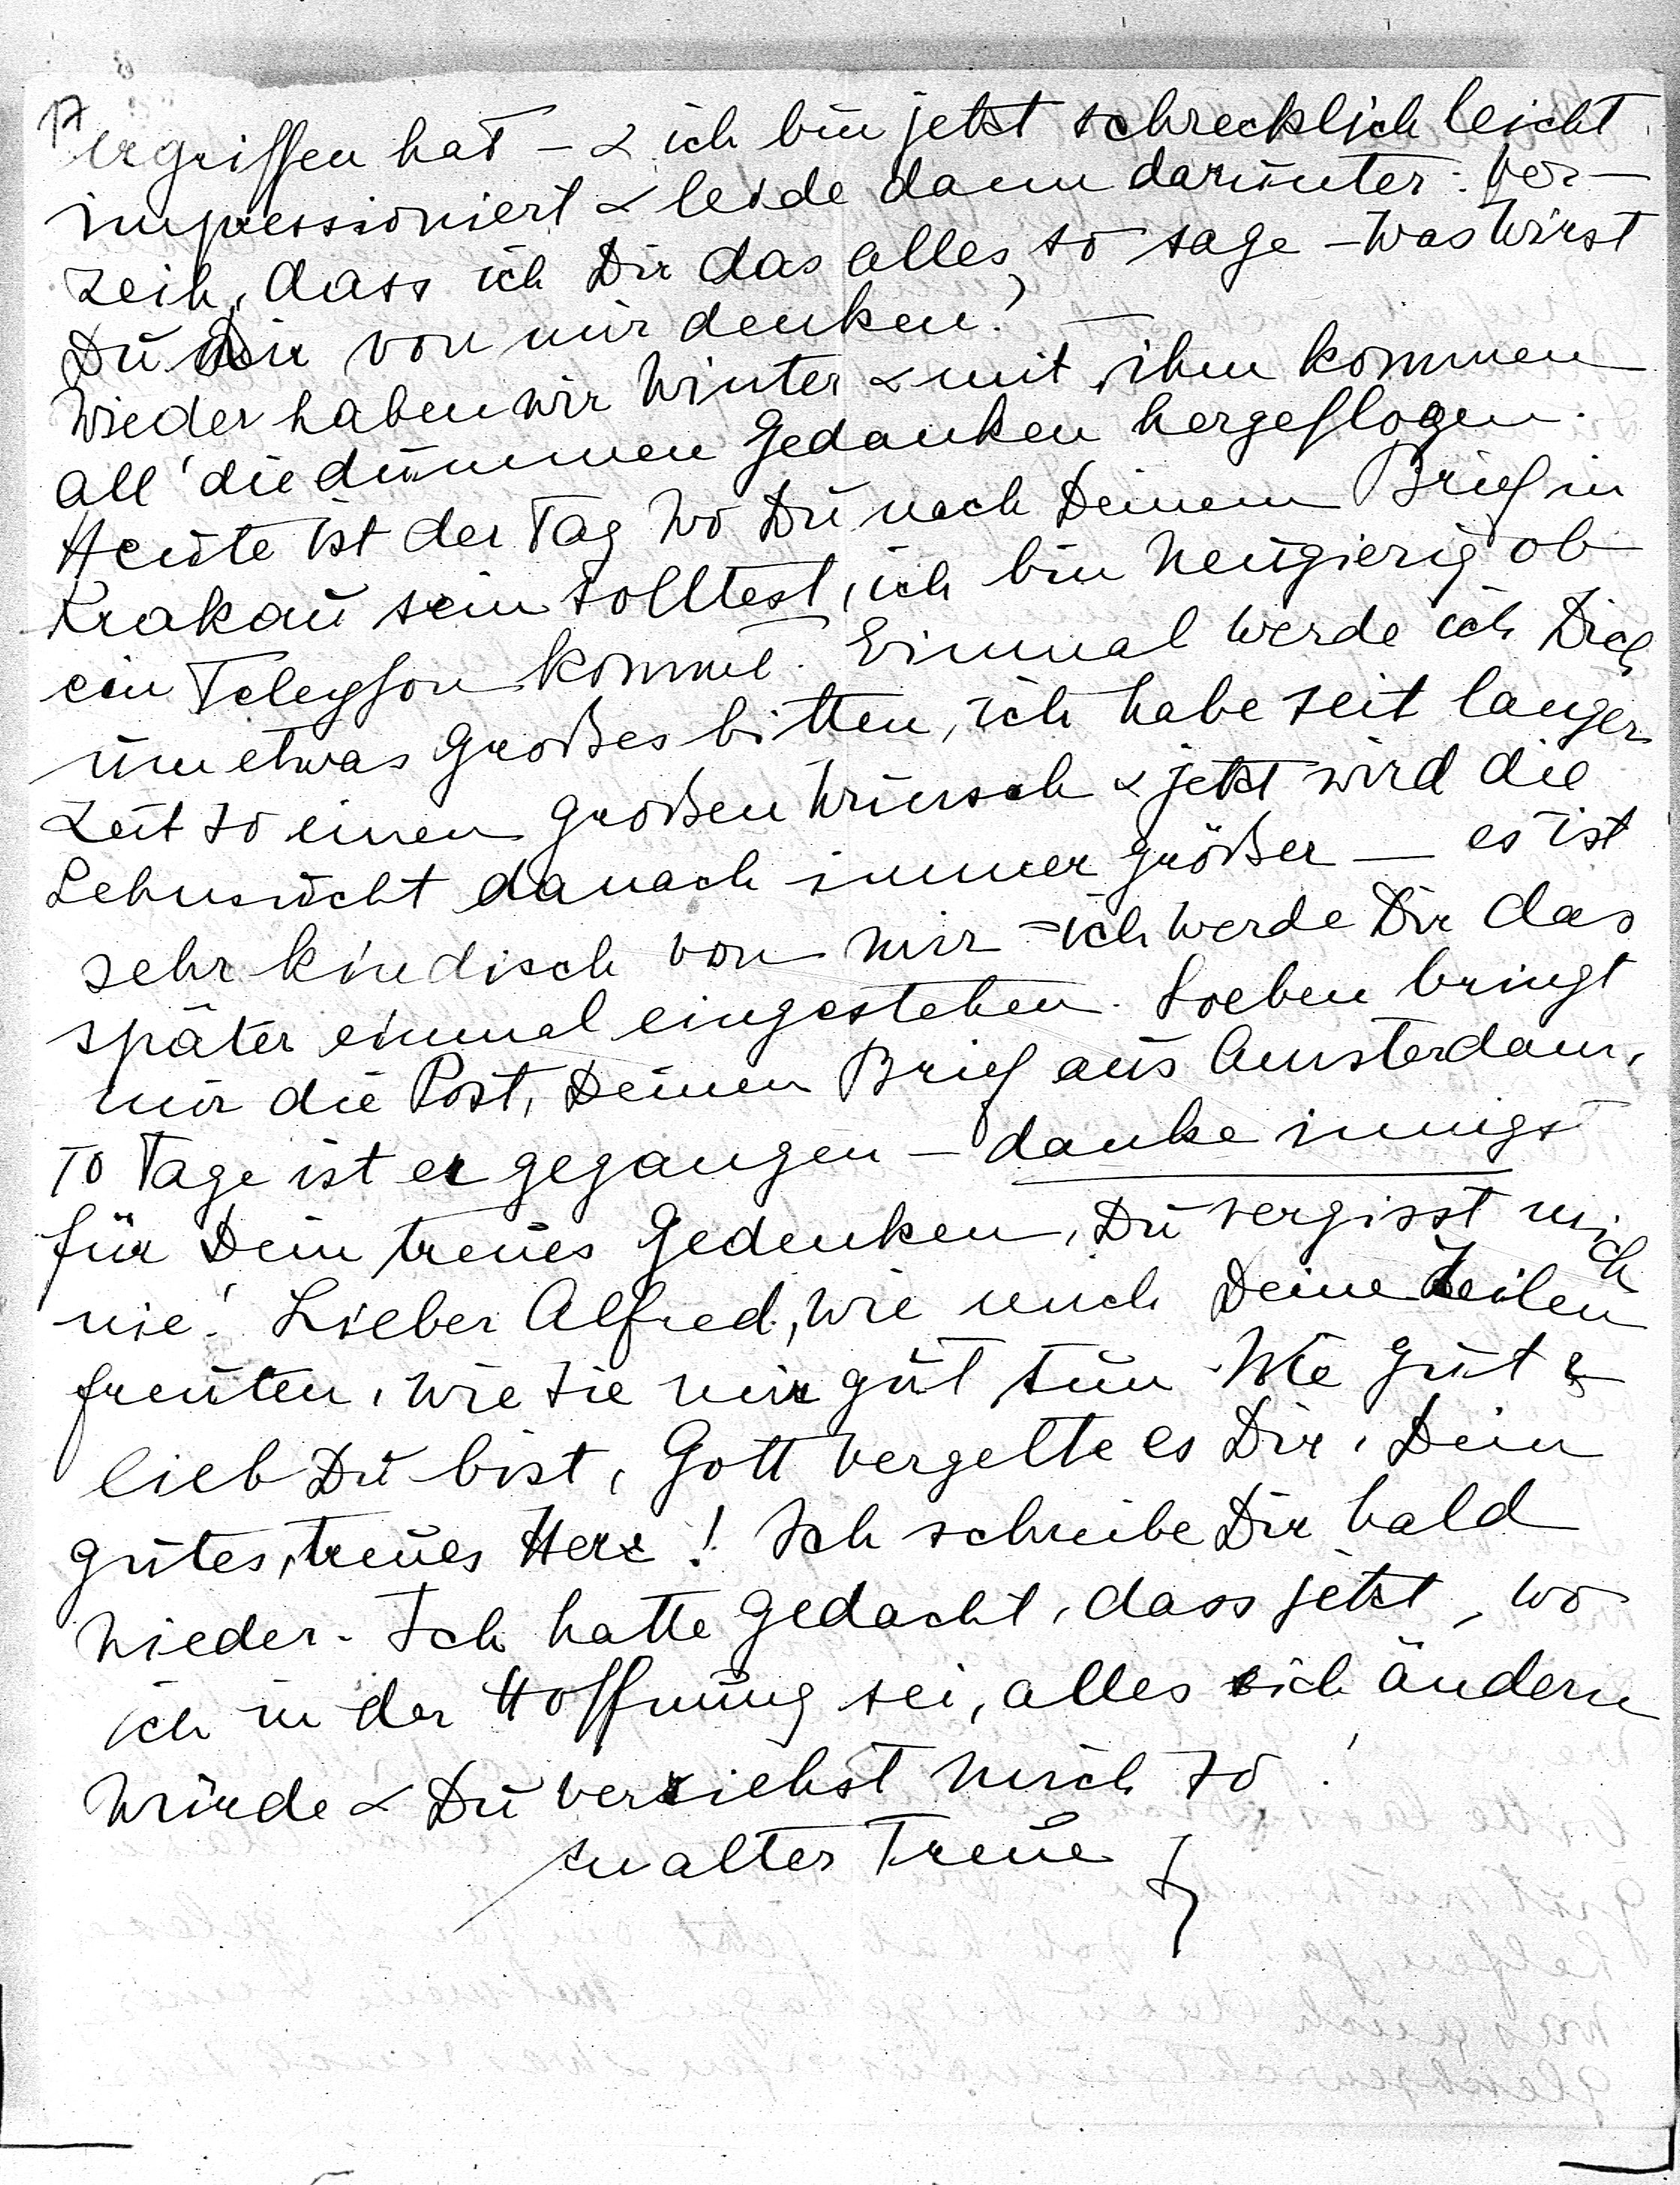 17
ergriffen hat – & ich bin jetzt schrecklich leicht
impressioniert & leide dann darunter. Ver-
zeih, dass ich Dir das alles so sage – Was wirst
Du Dir von mir denken? –
Wieder haben wir Winter & mit ihm kommen
all' die dummen Gedanken hergeflogen.
Heute ist der Tag wo Du nach Deinem Brief in
Krakau sein solltest, ich bin neugierig ob
ein Telegfon kommt. Einmal werde ich Dich
um etwas großes bitten, ich habe seit langer
Zeit so einen großen Wunsch & jetzt wird die
Sehnsucht danach immer größer — es ist
sehr kindisch von mir – ich werde Dir das
später einmal eingestehen. Soeben bringt
mir die Post, Deinen Brief aus Amsterdam,
10 Tage ist er gegangen – danke innigst
für Dein treues Gedenken, Du vergisst mich
nie! Lieber Alfred, wie mich Deine Zeilen
freuten, wie sie mir gut tun. Wie gut &
lieb Du bist, Gott vergelte es Dir, Dein
gutes, treues Herz! Ich schreibe Dir bald
wieder. Ich hatte gedacht, dass jetzt, wo
ich in der Hoffnung sei, alles sich ändern
würde & Du verziehst mich so!
In alter Treue